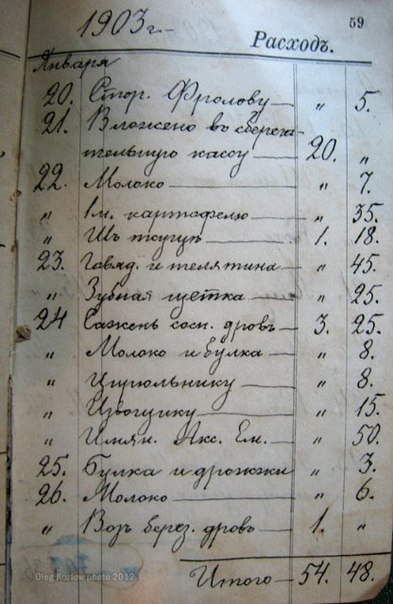 1903 г. 59
Расходъ.
Января
20. Стор. Фролову — " 5.
21. Вложено въ сберега-
тельную кассу — 20. "
22. Молоко — " 7.
" 1м. картофелю — " 35.
" 1. 18.
23. Говяд. и телятина — " 45.
" Зубная щетка — " 25.
24 Сажень сосн. дровъ — 3. 25.
" Молоко и булка — " 8.
" — " 8.
" Извощику — " 15.
" Имян. Акс. Ем. — " 50.
25. Булка и дрожжи " 3.
26. Молоко — " 6.
" Возъ берез. дровъ — 1. "
Итого — 54. 48.
© Oleg Kozlow photo 2012